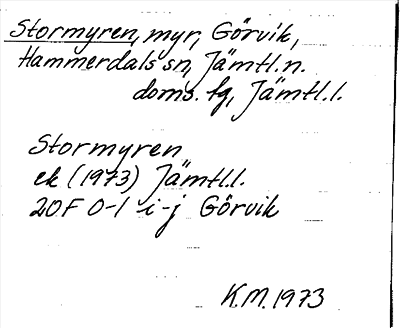 Stormyren, myr, Görvik,
Hammerdals sn, Jämtl.n.
doms. fg, Jämtl.l.
Stormyren
ek (1973) Jämtl.l.
20F 0-1 i-j Görvik
K.M. 1973